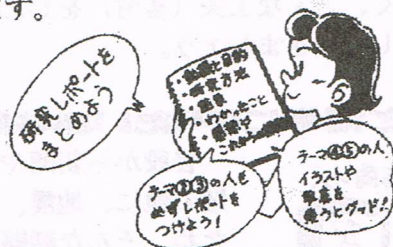 す。
研究レポートを
まとめよう
・動機と目的
・研究方法
・結果
・わかったこと
・感想や
テーマ②③の人も
必ずレポートを
つけよう！
テーマ④⑤の人
イラストや
写真を
使うとグッド！